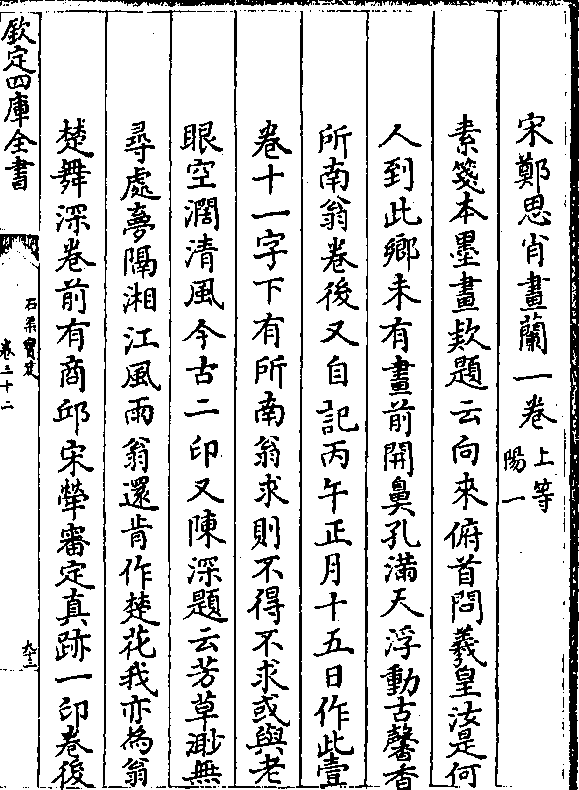 宋鄭思肖畫蘭一卷上等
陽一
素箋本墨畫款題云向來俯首問羲皇汝是何
人到此鄉未有畫前開鼻孔滿天浮動古馨香
所南翁卷後又自記丙午正月十五日作此壹
卷十一字下有所南翁求則不得不求或與老
眼空濶清風今古二印又陳深題云芳草渺無
尋處夢隔湘江風雨翁還肯作楚花我亦為翁
楚舞深卷前有商邱宋犖審定真跡一印卷後
欽定四庫全書
石渠寳笈
卷三十二
九三